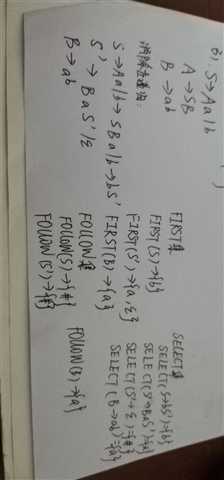 3). S→Aa|b
A→SB
B→ab
消除左递归:
S→Aa|b→SBa|b→bS'
S'→BaS'|ε
B→ab
FIRST集
FIRST(S)={b}
FIRST(S')={a,ε}
FIRST(B)={a}
FOLLOW集
FOLLOW(S)={#}
FOLLOW(S')={#}
FOLLOW(B)={a}
SELECT集
SELECT(S→bS')={b}
SELECT(S'→BaS')={a}
SELECT(S'→ε)={#}
SELECT(B→ab)={a}